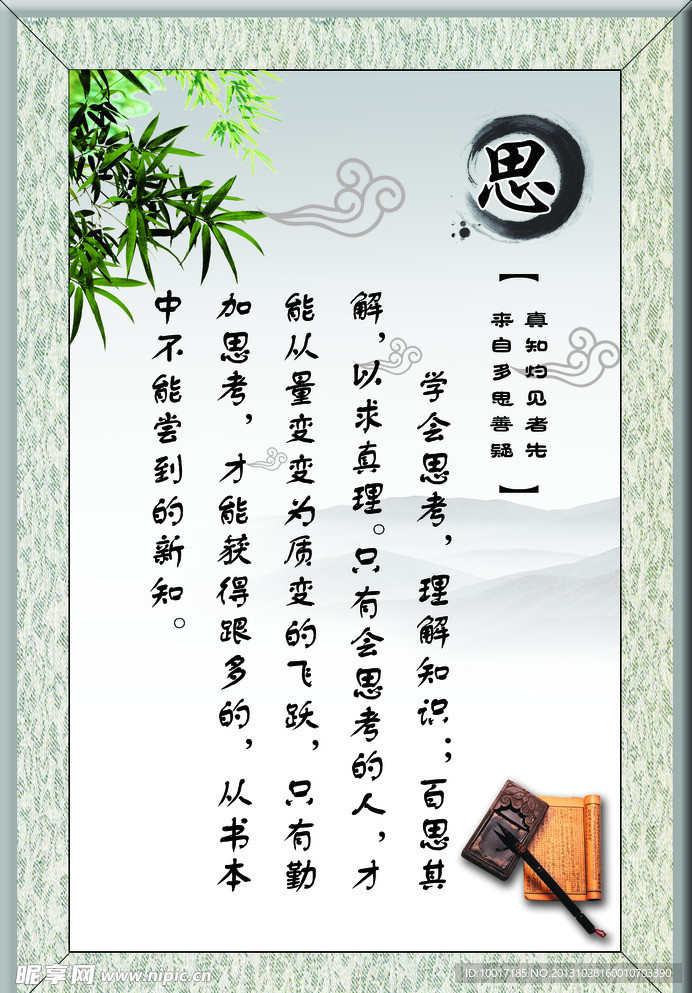 思
【
真知灼见者先
来自多思善疑
】
学会思考，理解知识；百思其
解，以求真理。只有会思考的人，才
能从量变变为质变的飞跃，只有勤
加思考，才能获得跟多的，从书本
中不能尝到的新知。
昵享网 www.nipic.cn
ID:10017185 NO:20131028160010703390